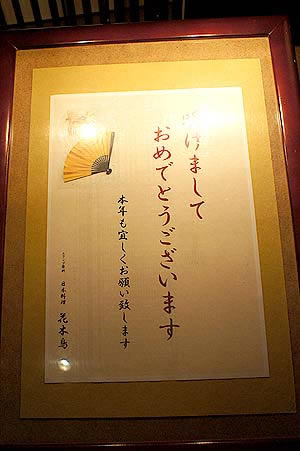 明けまして
おめでとうございます
本年も宜しくお願い致します
日本料理 花木鳥